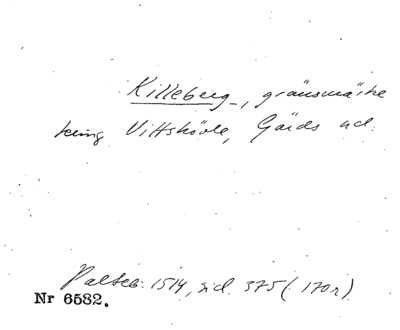 Killeberg, gränsmärke
kring Vittskövle, Gärds hd.
Palteb. 1514, sid. 375 (170r).
Nr 6582.